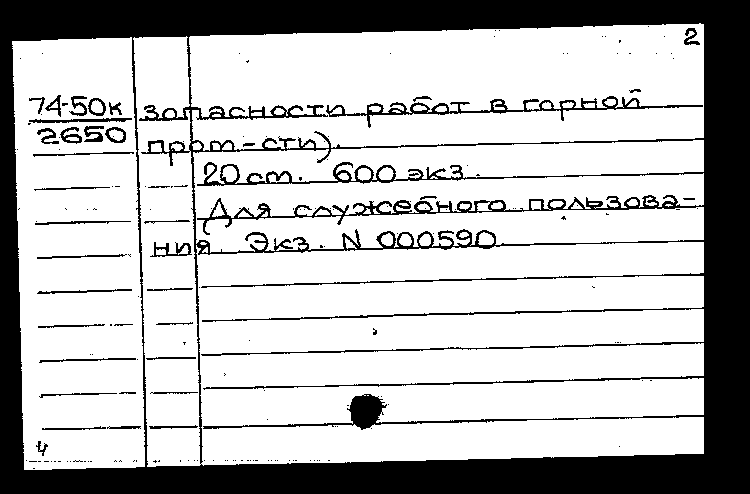 2
74-50к зопасности работ в горной
2650 пром-сти).
20 см. 600 экз.
Для служебного пользова-
ния. Экз. N 000590
4